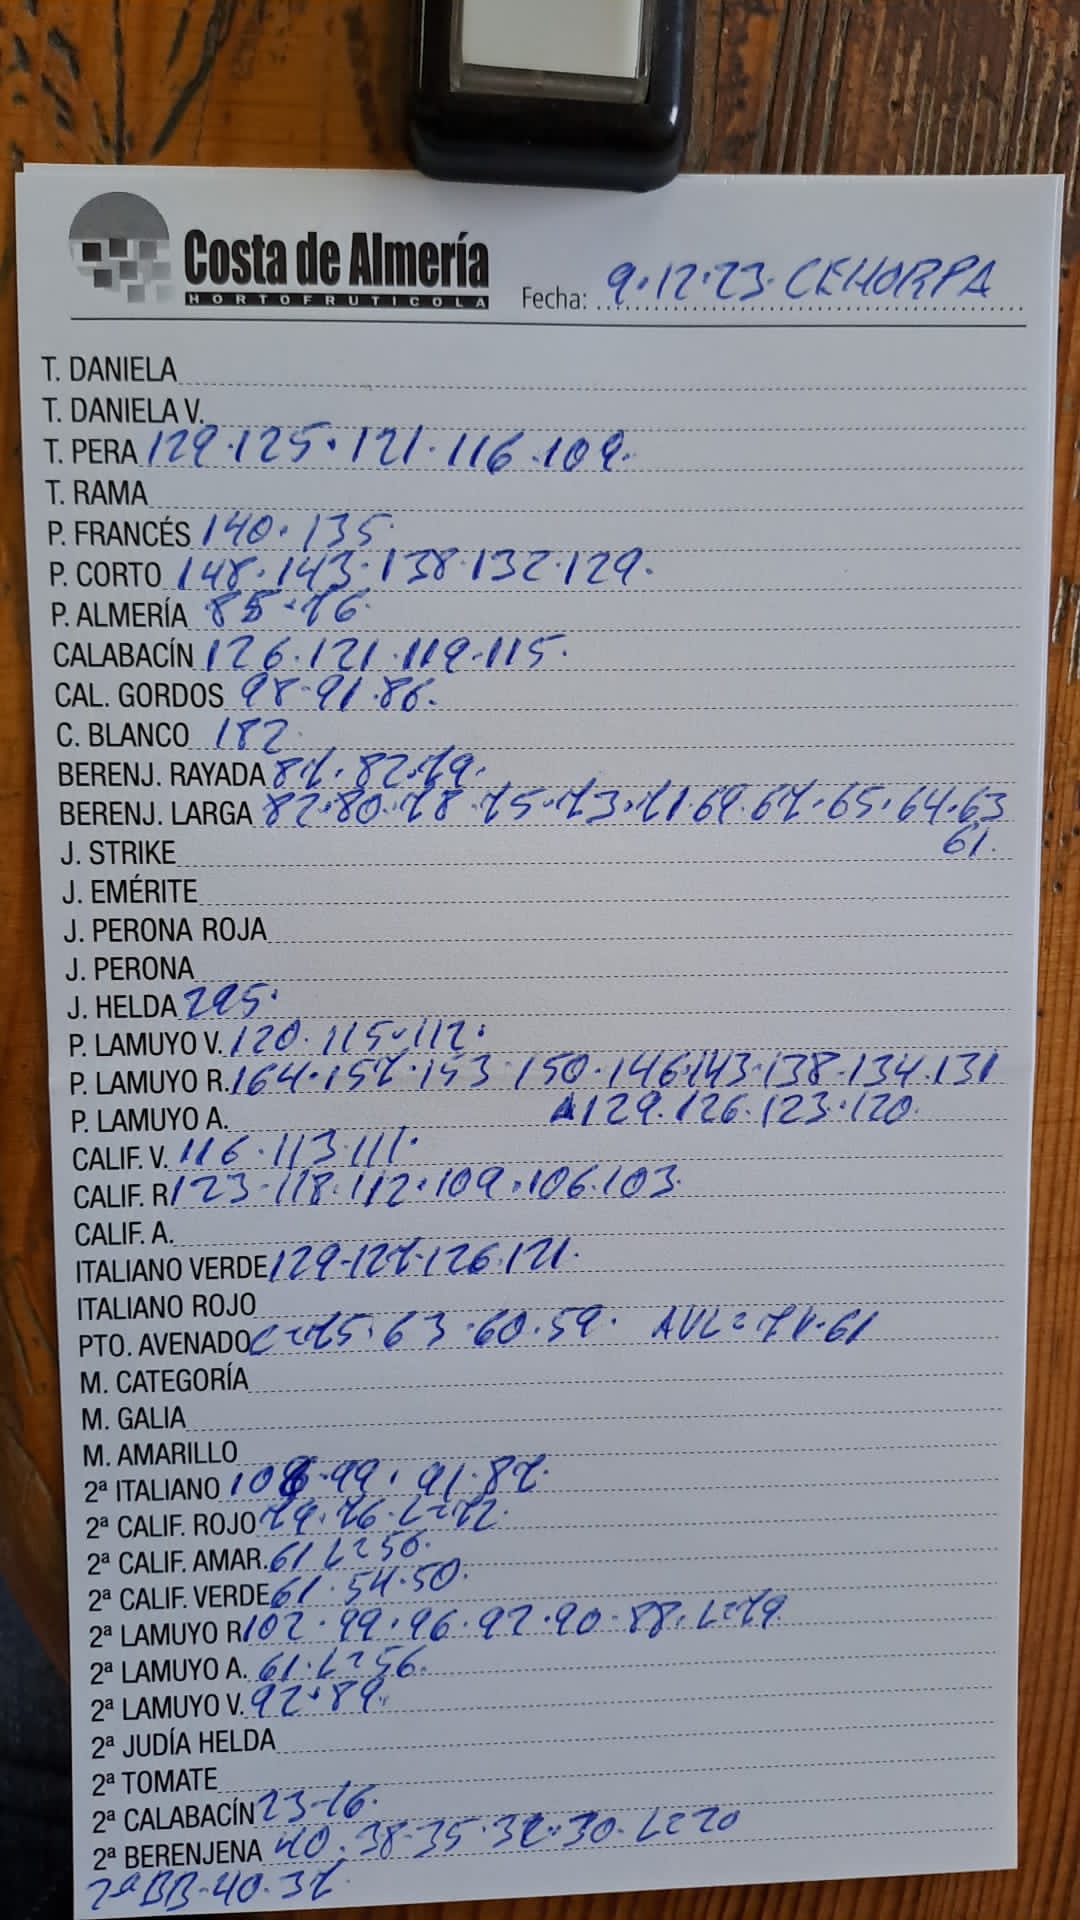 Costa de Almería
HORTOFRUTICOLA
Fecha: 9·12·23· CEHORPA
T. DANIELA
T. DANIELA V.
T. PERA 129·125·121·116·109·
T. RAMA
P. FRANCÉS 140·135·
P. CORTO 148·143·138·132·129·
P. ALMERÍA 85·76·
CALABACÍN 126·121·119·115·
CAL. GORDOS 98·91·86·
C. BLANCO 182·
BERENJ. RAYADA 87·82·79·
BERENJ. LARGA 82·80·78·75·73·71·69·67·65·64·63
61·
J. STRIKE
J. EMÉRITE
J. PERONA ROJA
J. PERONA
J. HELDA 295·
P. LAMUYO V. 120·115·112·
P. LAMUYO R. 164·157·153·150·146·143·138·134·131
129·126·123·120·
P. LAMUYO A.
CALIF. V. 116·113·111·
CALIF. R 123·118·112·109·106·103·
CALIF. A.
ITALIANO VERDE 129·127·126·121·
ITALIANO ROJO
PTO. AVENADO C=75·63·60·59· AVL=71·61
M. CATEGORÍA
M. GALIA
M. AMARILLO
2ª ITALIANO ·99·91·87·
2ª CALIF. ROJO 79·76·L=72·
2ª CALIF. AMAR. 61 L=56·
2ª CALIF. VERDE 61·54·50·
2ª LAMUYO R 102·99·96·92·90·88·L=79
2ª LAMUYO A. 61·L=56·
2ª LAMUYO V. 92·89·
2ª JUDÍA HELDA
2ª TOMATE
2ª CALABACÍN 23-16·
2ª BERENJENA 40·38·35·32·30·L=20
2ªBB·40·37·